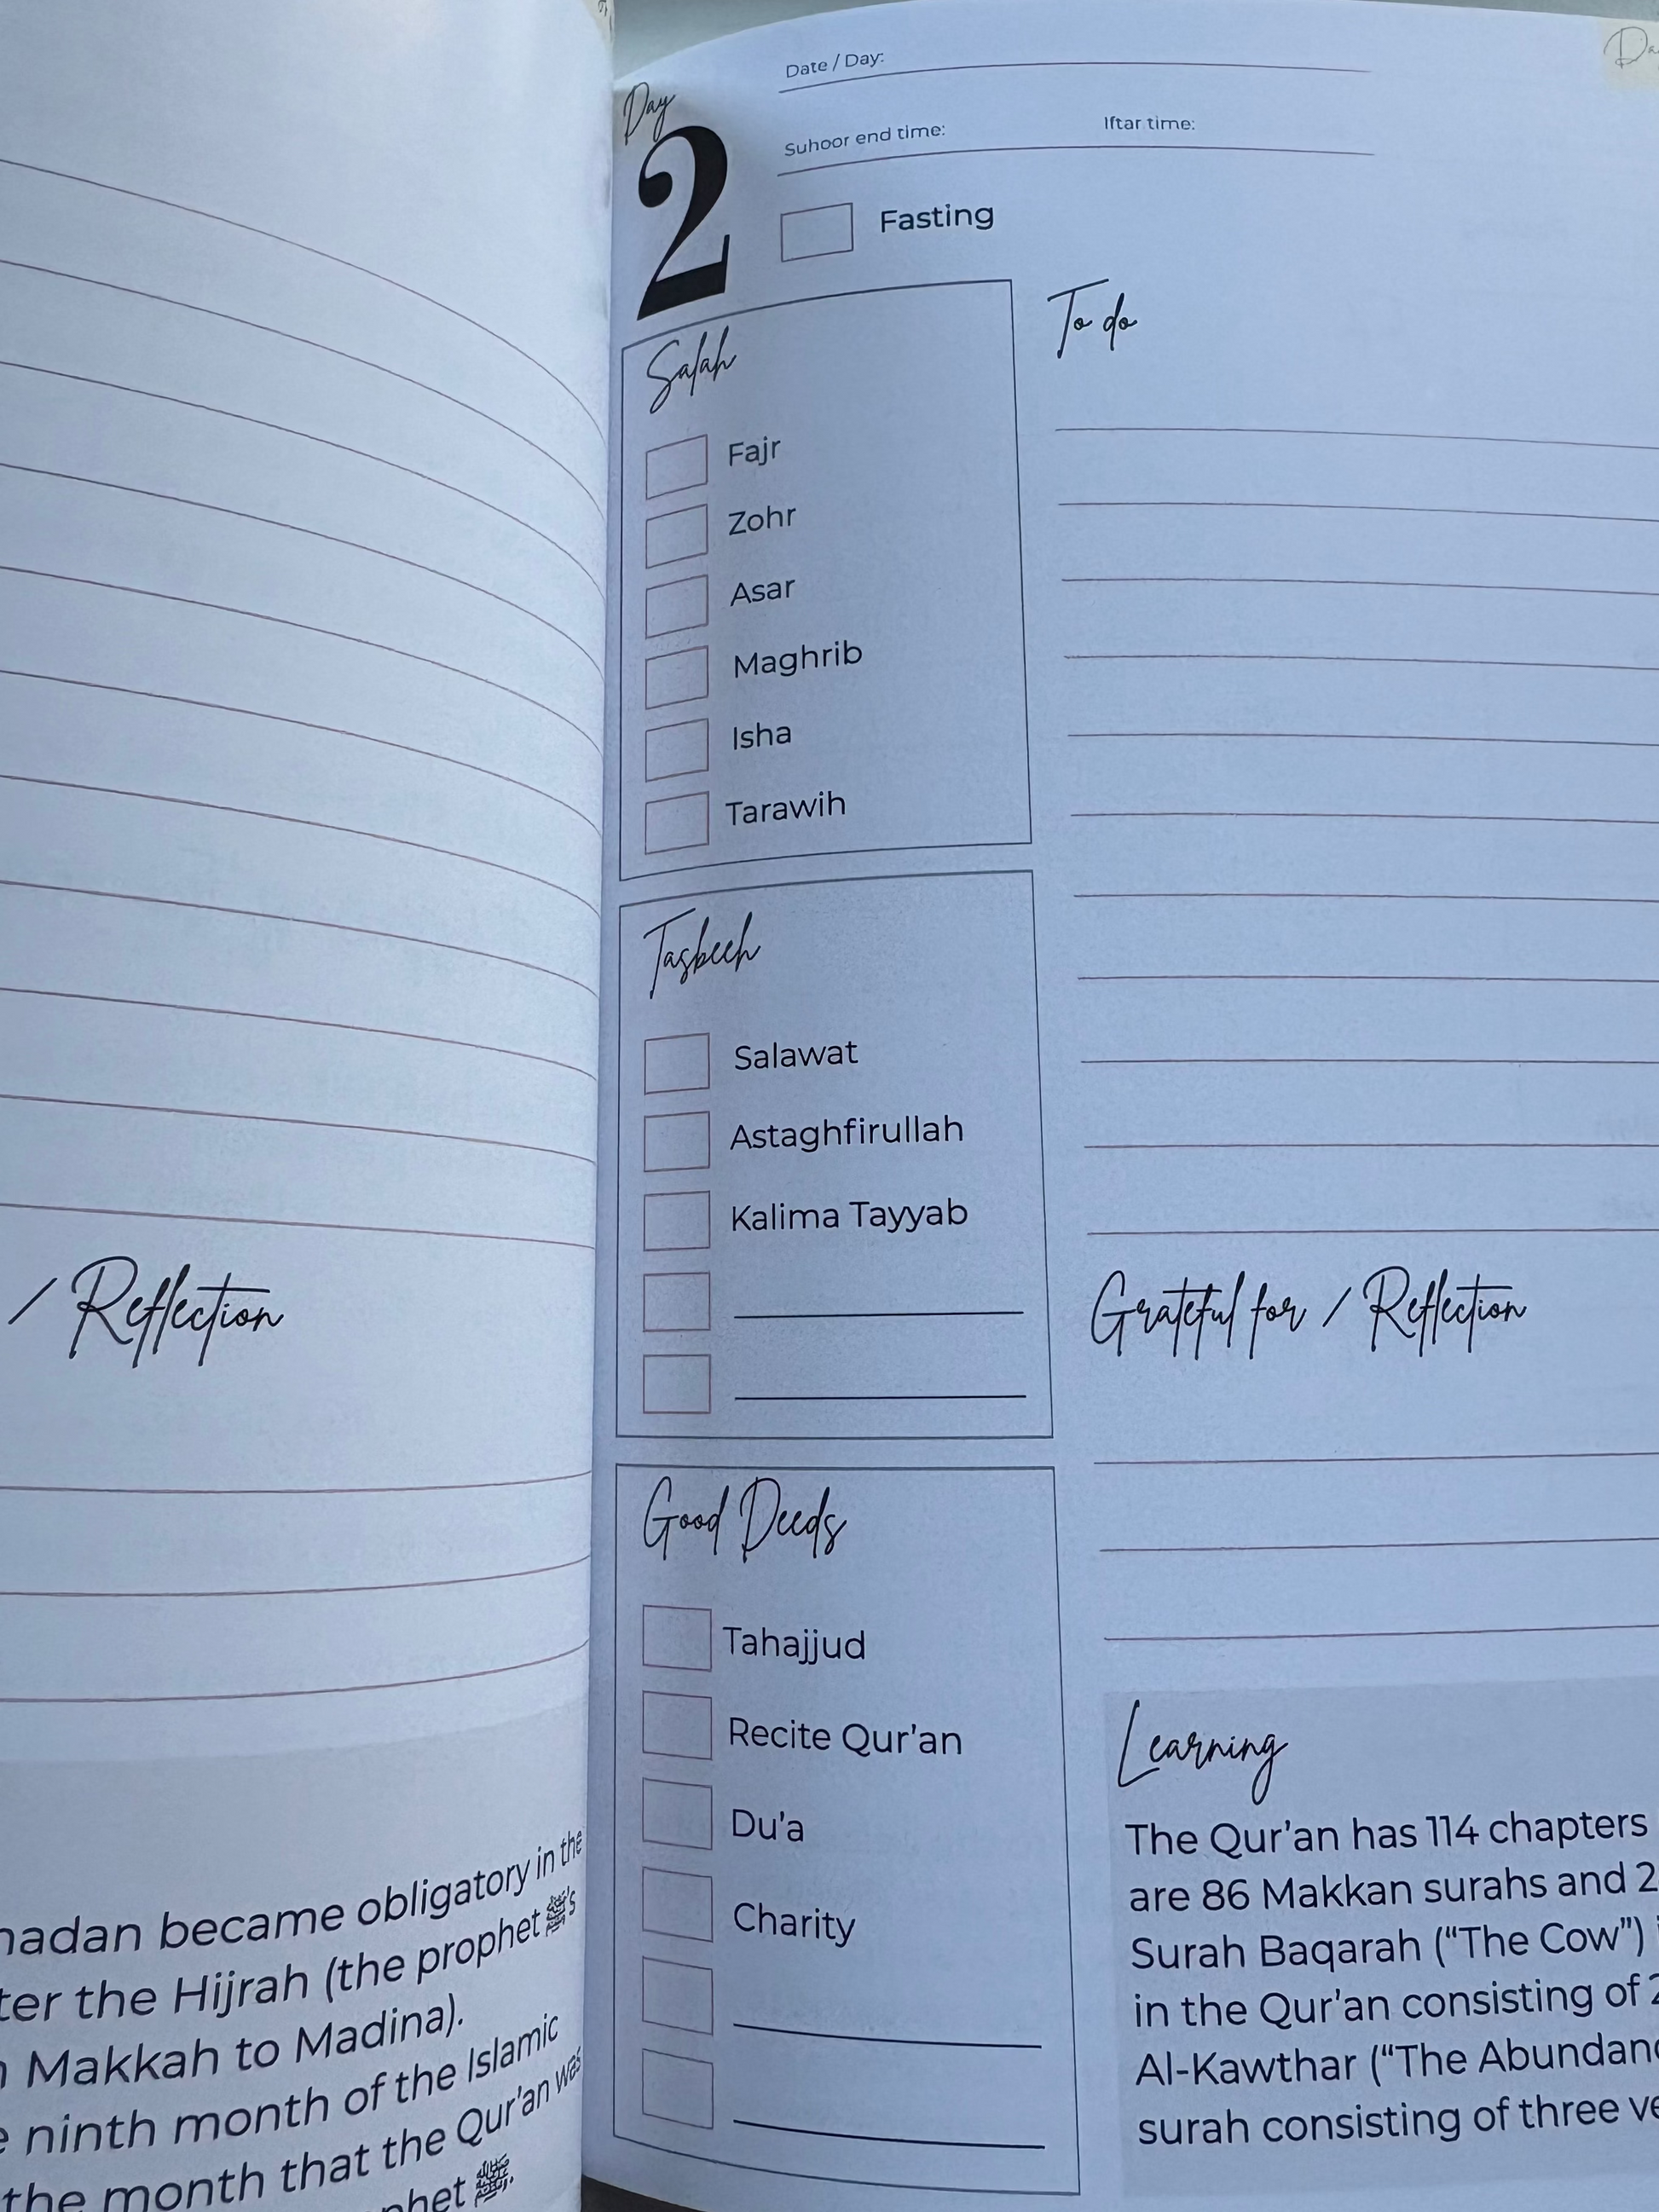 / Reflection
madan became obligatory in the
ter the Hijrah (the prophet ﷺ's
Makkah to Madina).
ninth month of the Islamic
the month that the Qur'an was
ﷺ.
Day
2
Date / Day:
Suhoor end time: Iftar time:
Fasting
Salah
Fajr
Zohr
Asar
Maghrib
Isha
Tarawih
Tasbeeh
Salawat
Astaghfirullah
Kalima Tayyab
Good Deeds
Tahajjud
Recite Qur'an
Du'a
Charity
To do
Grateful for / Reflection
Learning
The Qur'an has 114 chapters
are 86 Makkan surahs and 2
Surah Baqarah ("The Cow")
in the Qur'an consisting of 2
Al-Kawthar ("The Abundanc
surah consisting of three ve